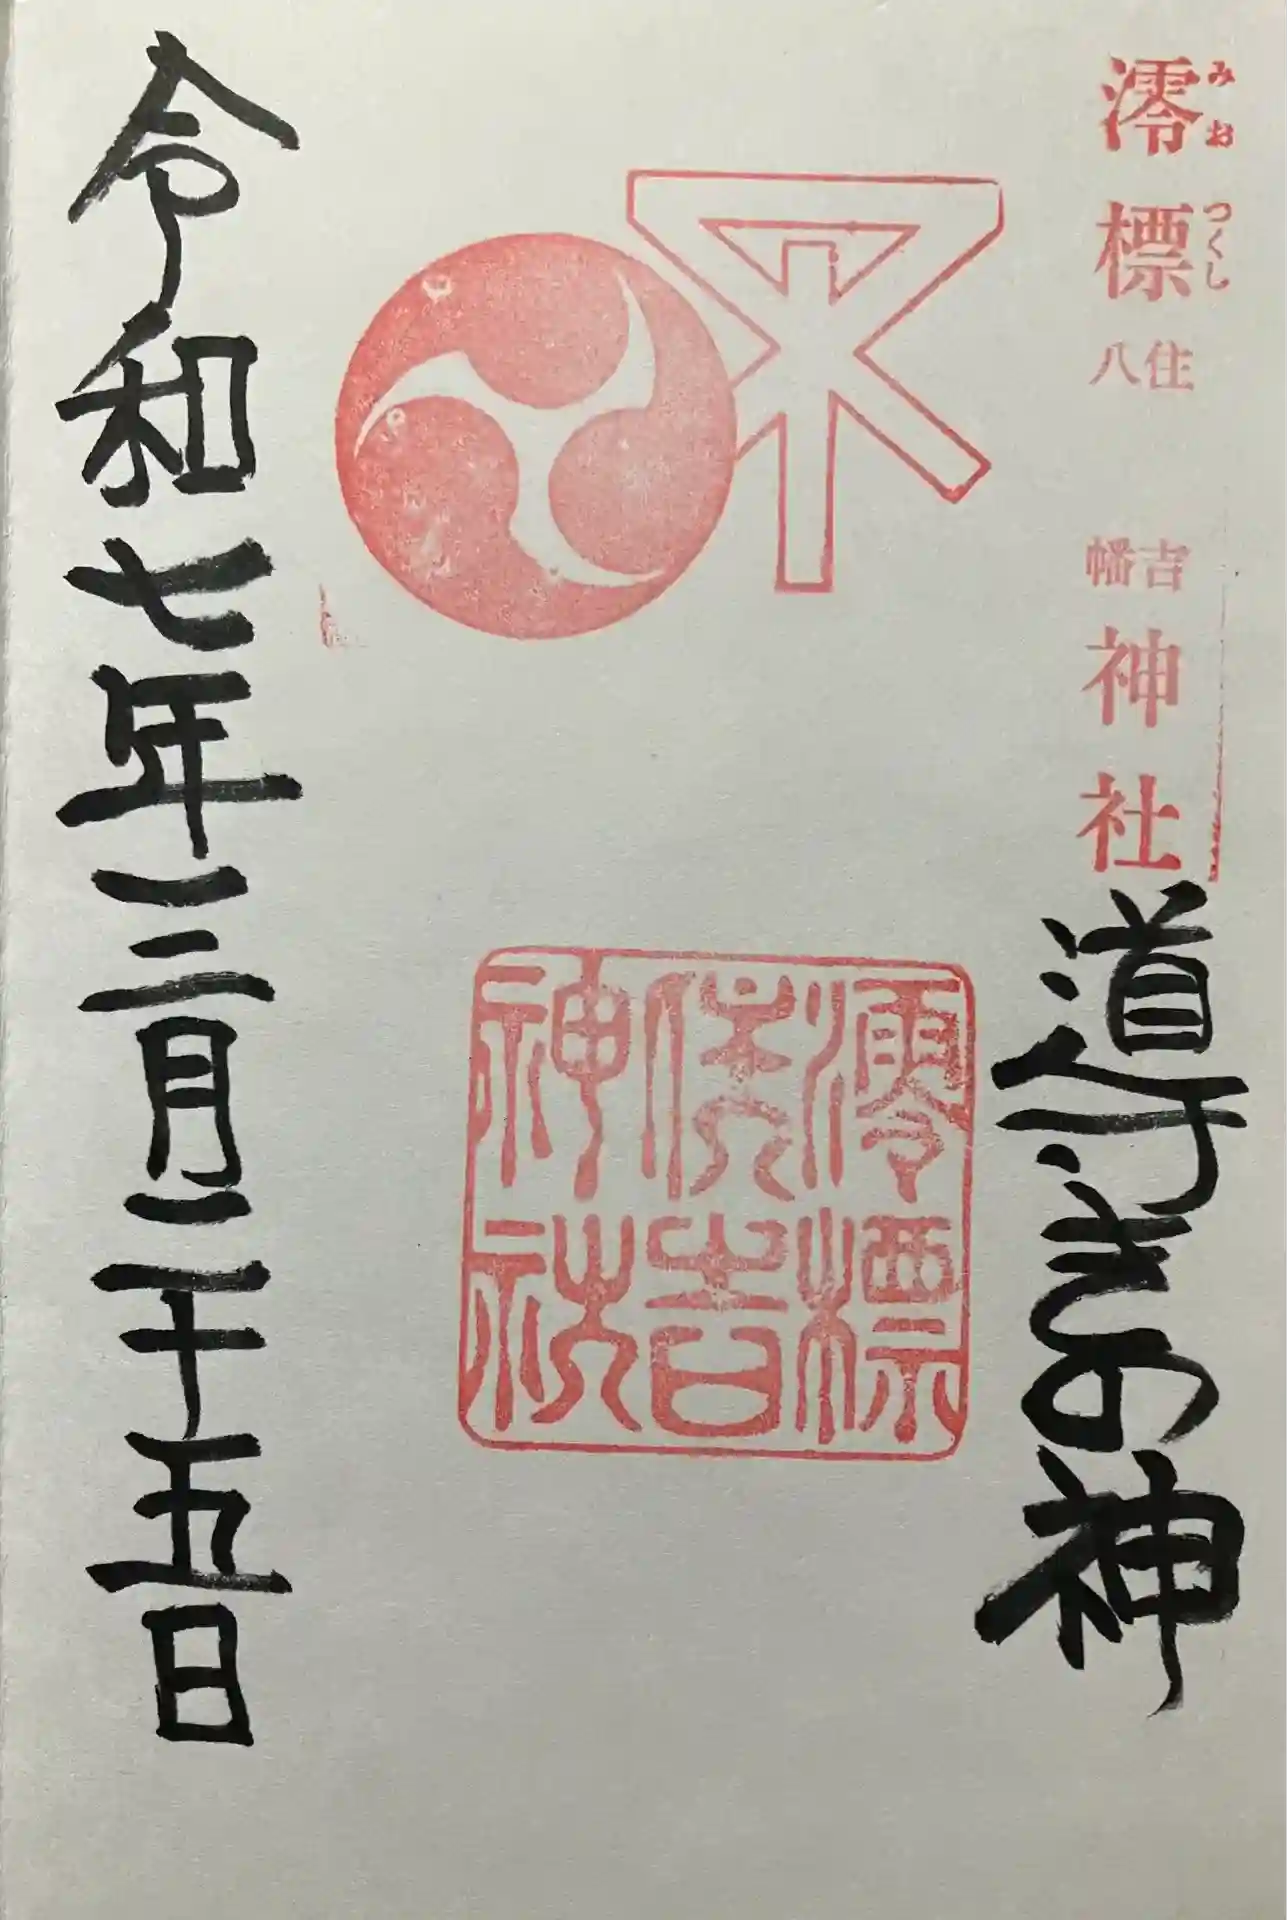 澪標住吉八幡神社
みおつくし
道びきの神
澪標
住吉
神社
令和七年三月二十五日